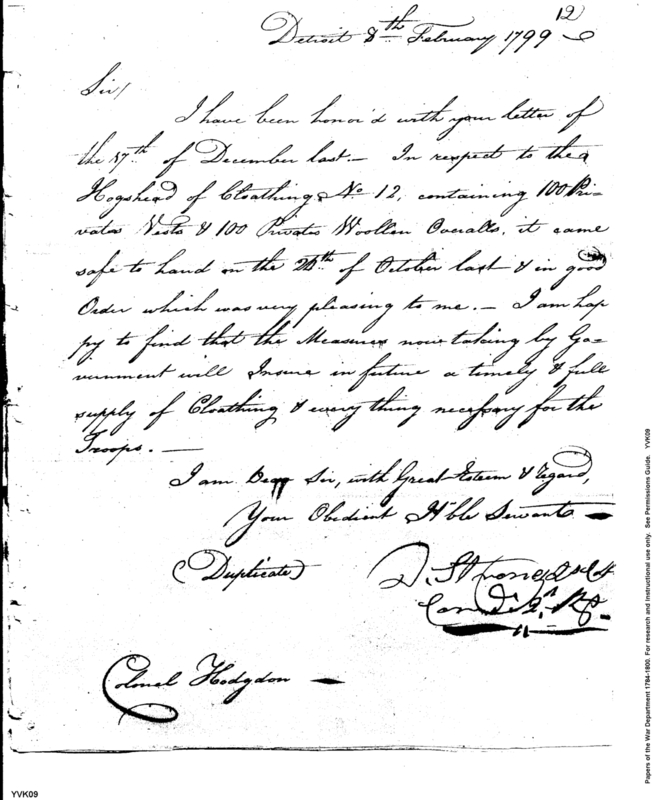 12
Detroit 8th February 1799
Sir/
I have been honor'd with your letter of
the 17th of December last. — In respect to the
Hogshead of Cloathing No. 12, containing 100 Pri-
vates Vests & 100 Privates Woollen Overalls, it came
safe to hand on the of October last & in good
Order which was very pleasing to me. — I am hap
py to find that the Measures now taking by Go-
vernment will Insure in future a timely & full
supply of Cloathing & every thing necessary for the
Troops. —
I am Dear Sir, with Great Esteem & Regard,
Your Obedient Hble Servant
(Duplicate)
D. Strong
2n
Colonel Hodgdon
YVK09
Papers of the War Department 1784-1800. For research and instructional use only. See Permissions Guide. YVK09